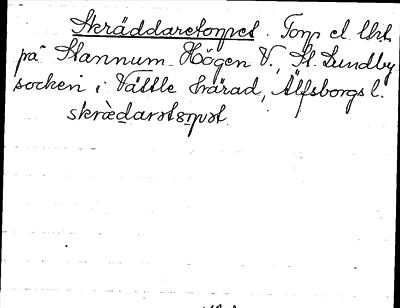 Skräddaretorpet. Torp el. lht.
på Stannum-Högen V., St. Lundby
socken i Vättle härad, Älfsborgs l.
skrædarstɷrpst